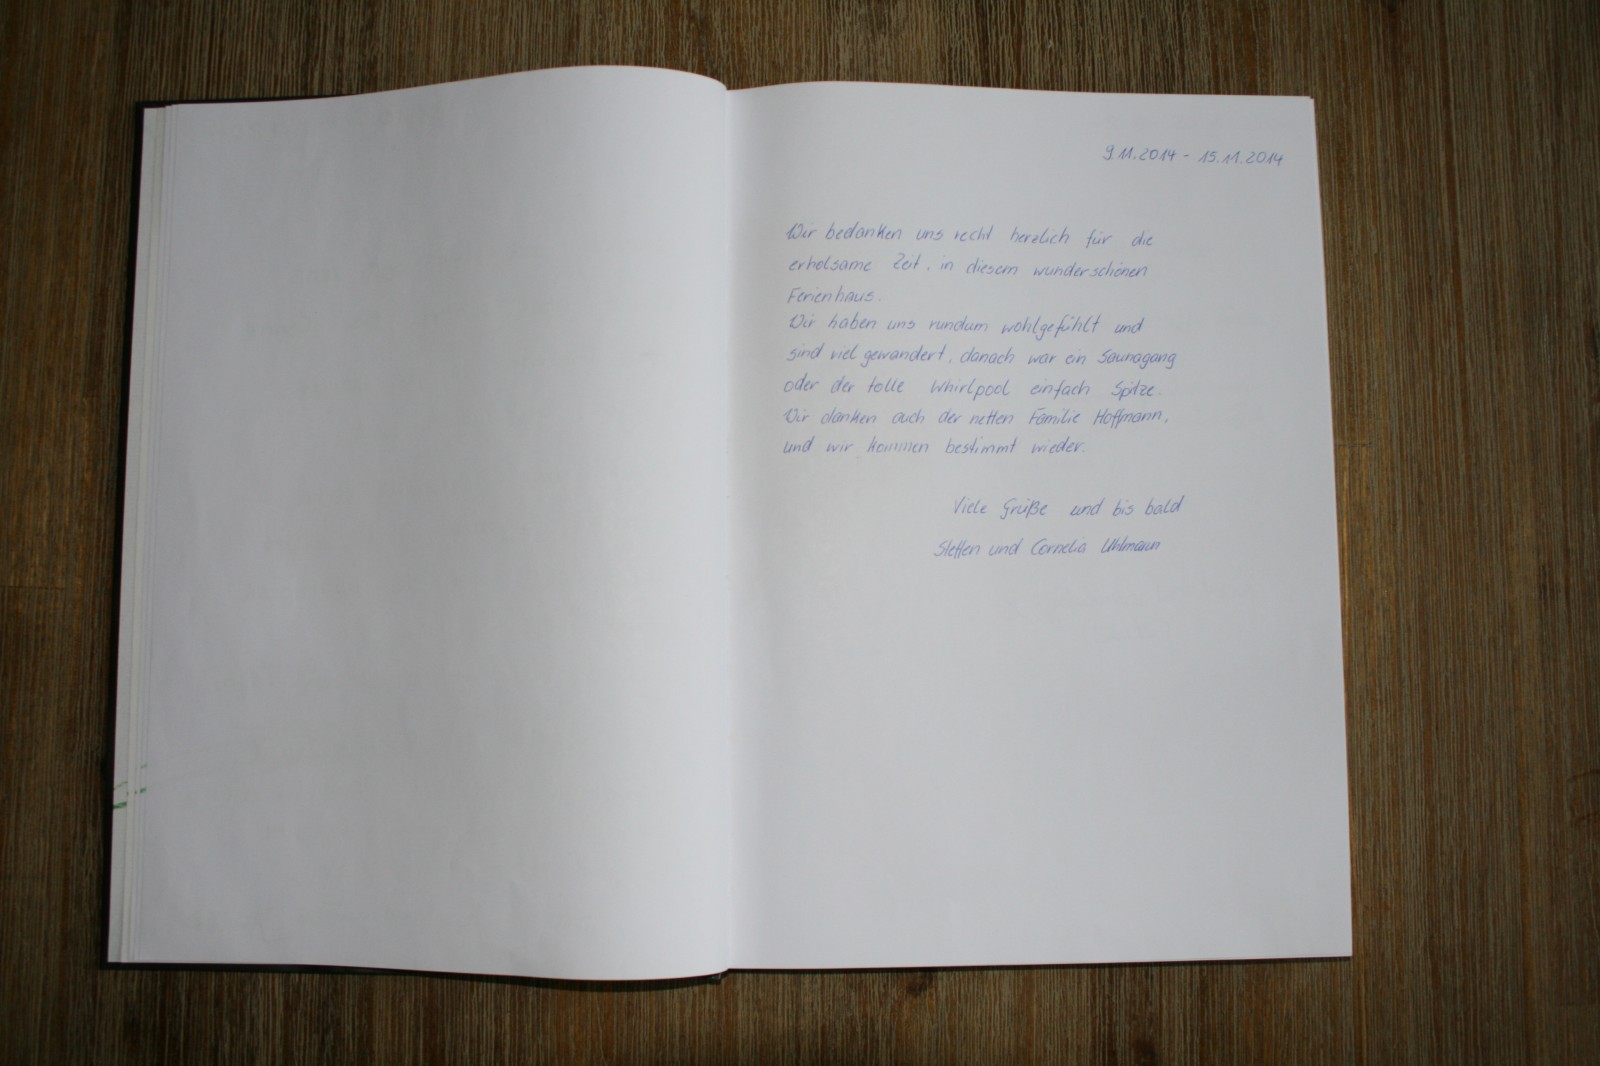 9.11.2014 - 15.11.2014
Wir bedanken uns recht herzlich für die
erholsame Zeit, in diesem wunderschönen
Ferienhaus.
Wir haben uns rundum wohlgefühlt und
sind viel gewandert, danach war ein Saunagang
oder der tolle Whirlpool einfach Spitze.
Wir danken auch der netten Familie Hoffmann,
und wir kommen bestimmt wieder.
Viele Grüße und bis bald
Steffen und Cornelia Uhlmann